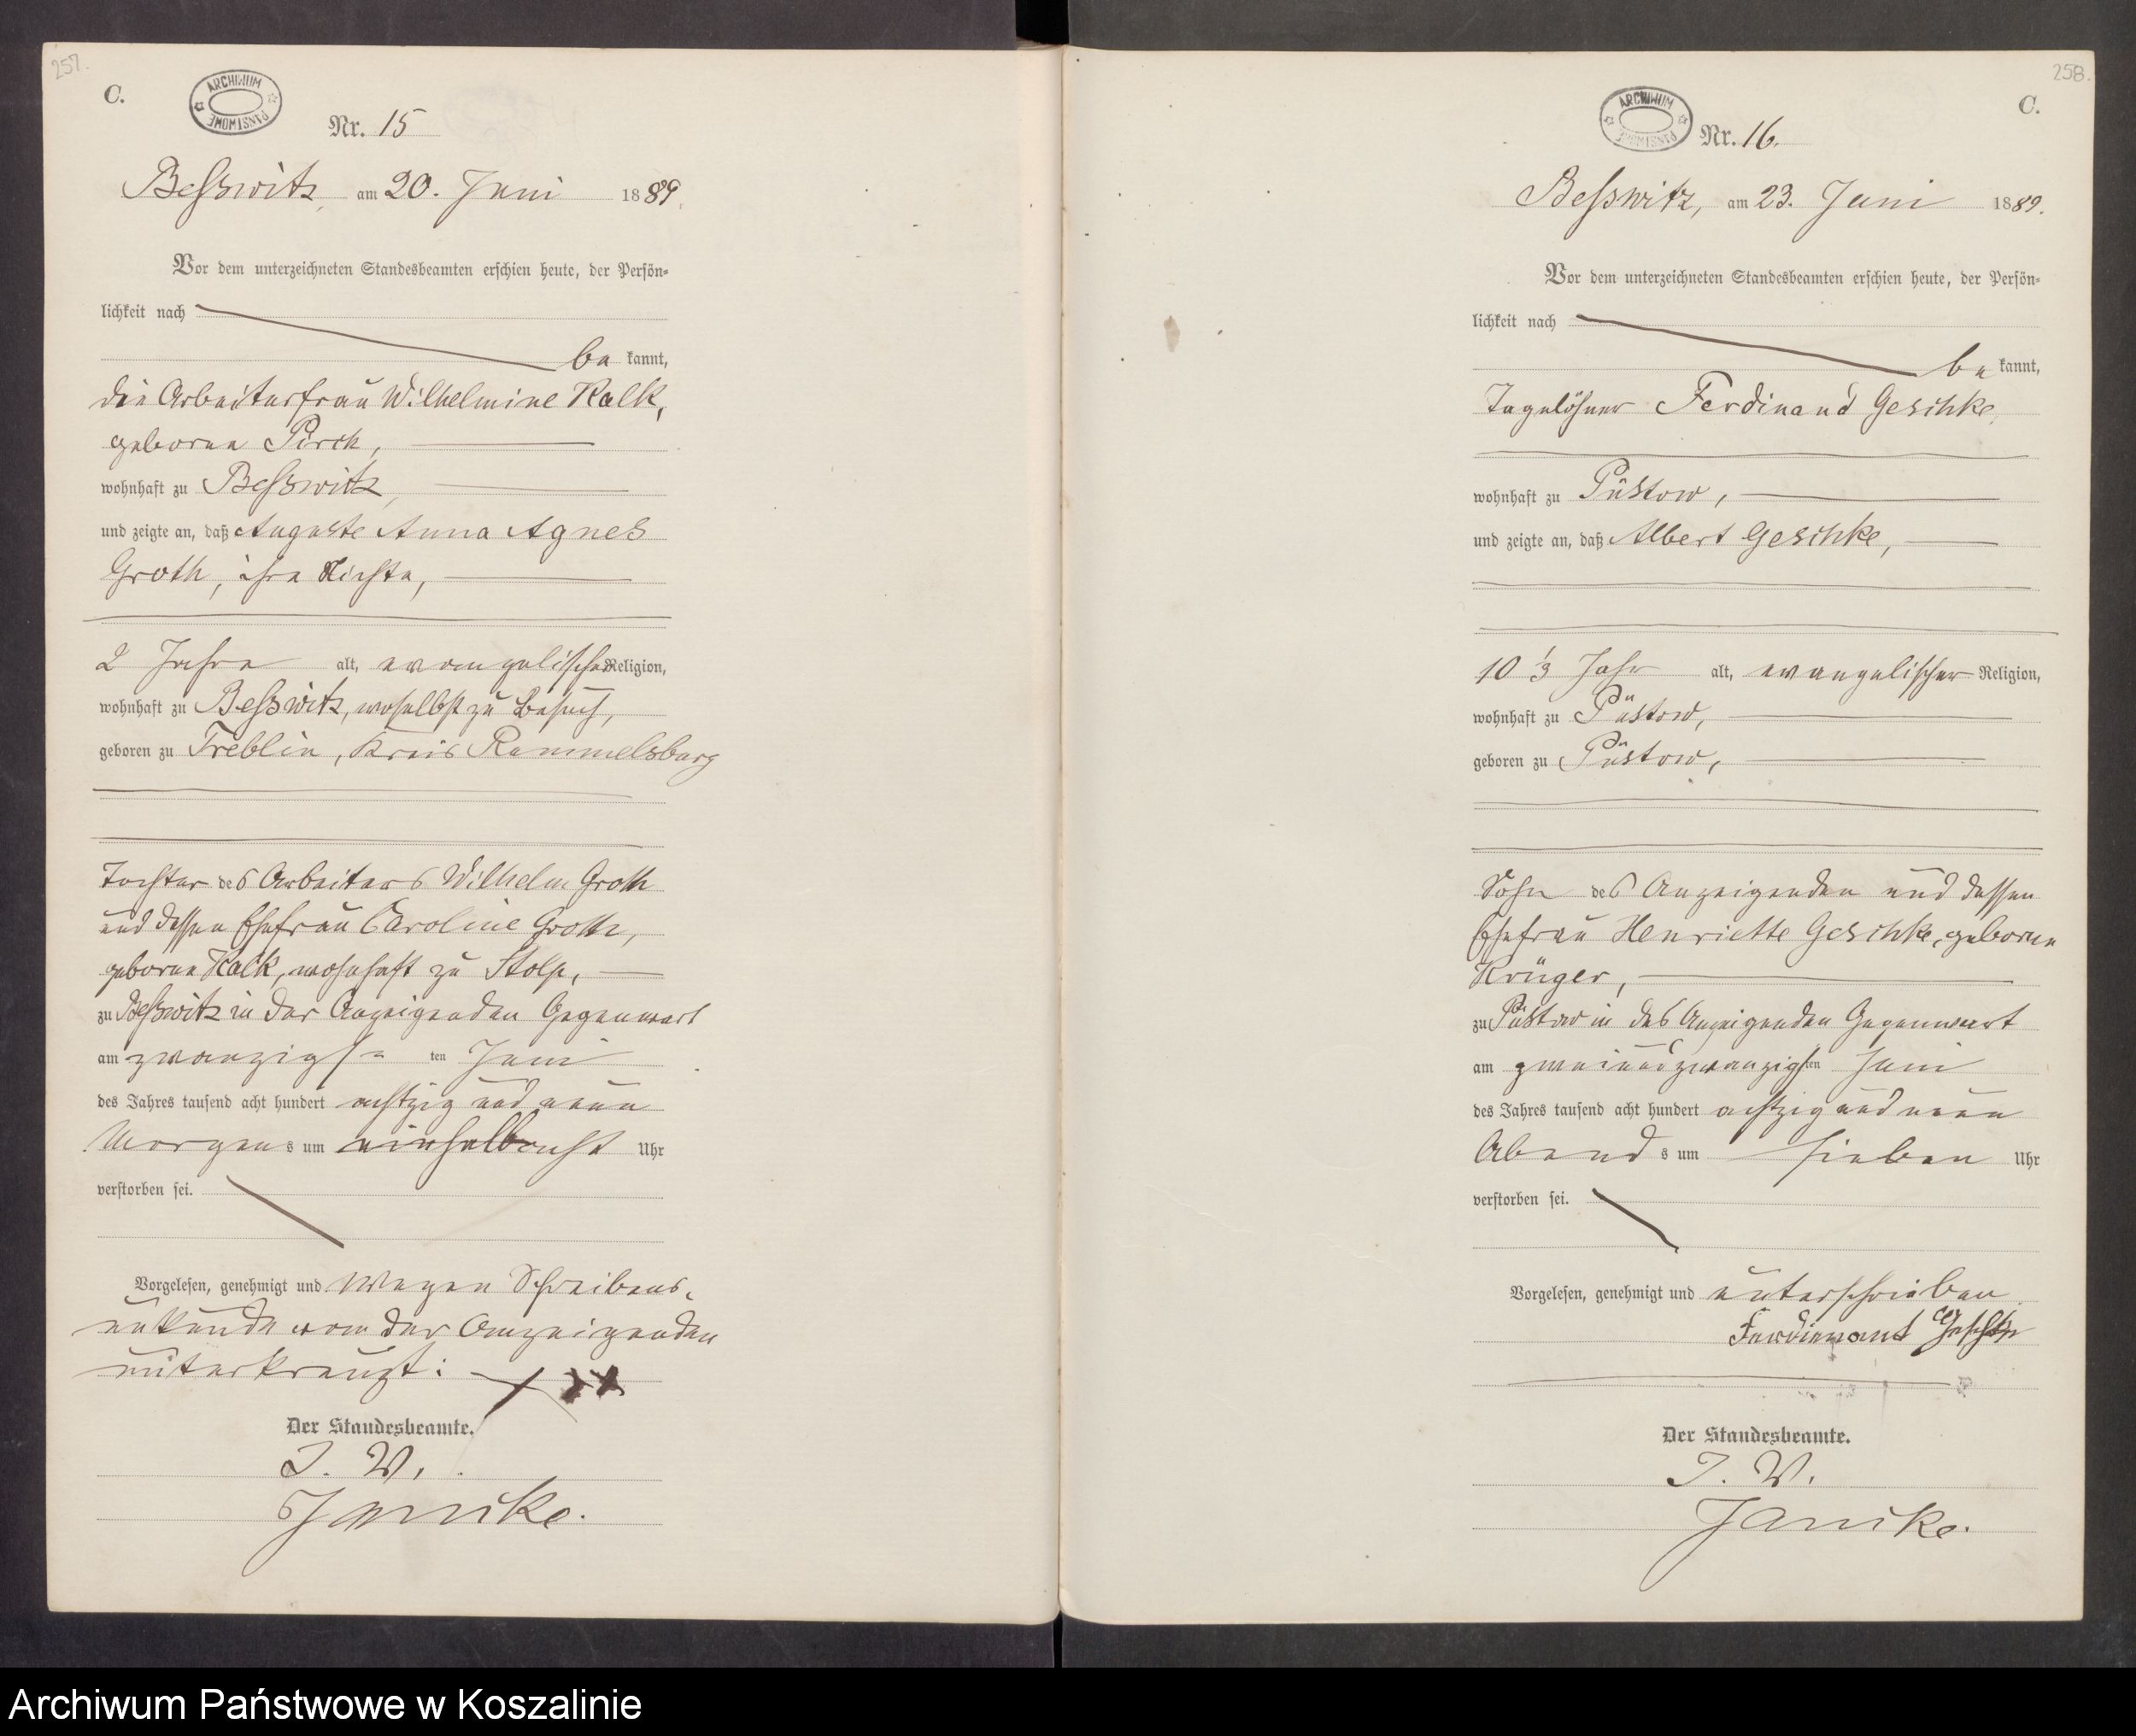 257.
C.
ARCHIWUM PAŃSTWOWE
Nr. 15
Beßwitz, am 20. Juni 1889.
Vor dem unterzeichneten Standesbeamten erschien heute, der Persön-
lichkeit nach
be kannt,
die Arbeiterfrau Wilhelmine Kalk,
geborne Pirch,
wohnhaft zu Beßwitz,
und zeigte an, daß Auguste Anna Agnes
Groth, ihre Nichte,
2 Jahre alt, evangelischer Religion,
wohnhaft zu Beßwitz, woselbst zu Besuch,
geboren zu Treblin, Kreis Rummelsburg
Tochter des Arbeiters Wilhelm Groth
und dessen Ehefrau Caroline Groth,
geborne Kalk, wohnhaft zu Stolp,
zu Beßwitz in der Anzeigenden Gegenwart
am zwanzigs ten Juni
des Jahres tausend acht hundert achtzig und neun
Morgens um einhalbacht Uhr
verstorben sei.
Vorgelesen, genehmigt und wegen Schreibens-
unkunde von der Anzeigenden
unterkreuzt: +++
Der Standesbeamte.
I. V.
Janike.
258.
C.
ARCHIWUM PAŃSTWOWE
Nr. 16.
Beßwitz, am 23. Juni 1889.
Vor dem unterzeichneten Standesbeamten erschien heute, der Persön-
lichkeit nach
be kannt,
Tagelöhner Ferdinand Geschke,
wohnhaft zu Püstow,
und zeigte an, daß Albert Geschke,
10 1/3 Jahr alt, evangelischer Religion,
wohnhaft zu Püstow,
geboren zu Püstow,
Sohn des Anzeigenden und dessen
Ehefrau Henriette Geschke, geborne
Krüger,
zu Püstow in des Anzeigenden Gegenwart
am zweiundzwanzigsten Juni
des Jahres tausend acht hundert achtzig und neun
Abends um sieben Uhr
verstorben sei.
Vorgelesen, genehmigt und unterschrieben
Ferdienant Geschke
Der Standesbeamte.
I. V.
Janike.
Archiwum Państwowe w Koszalinie